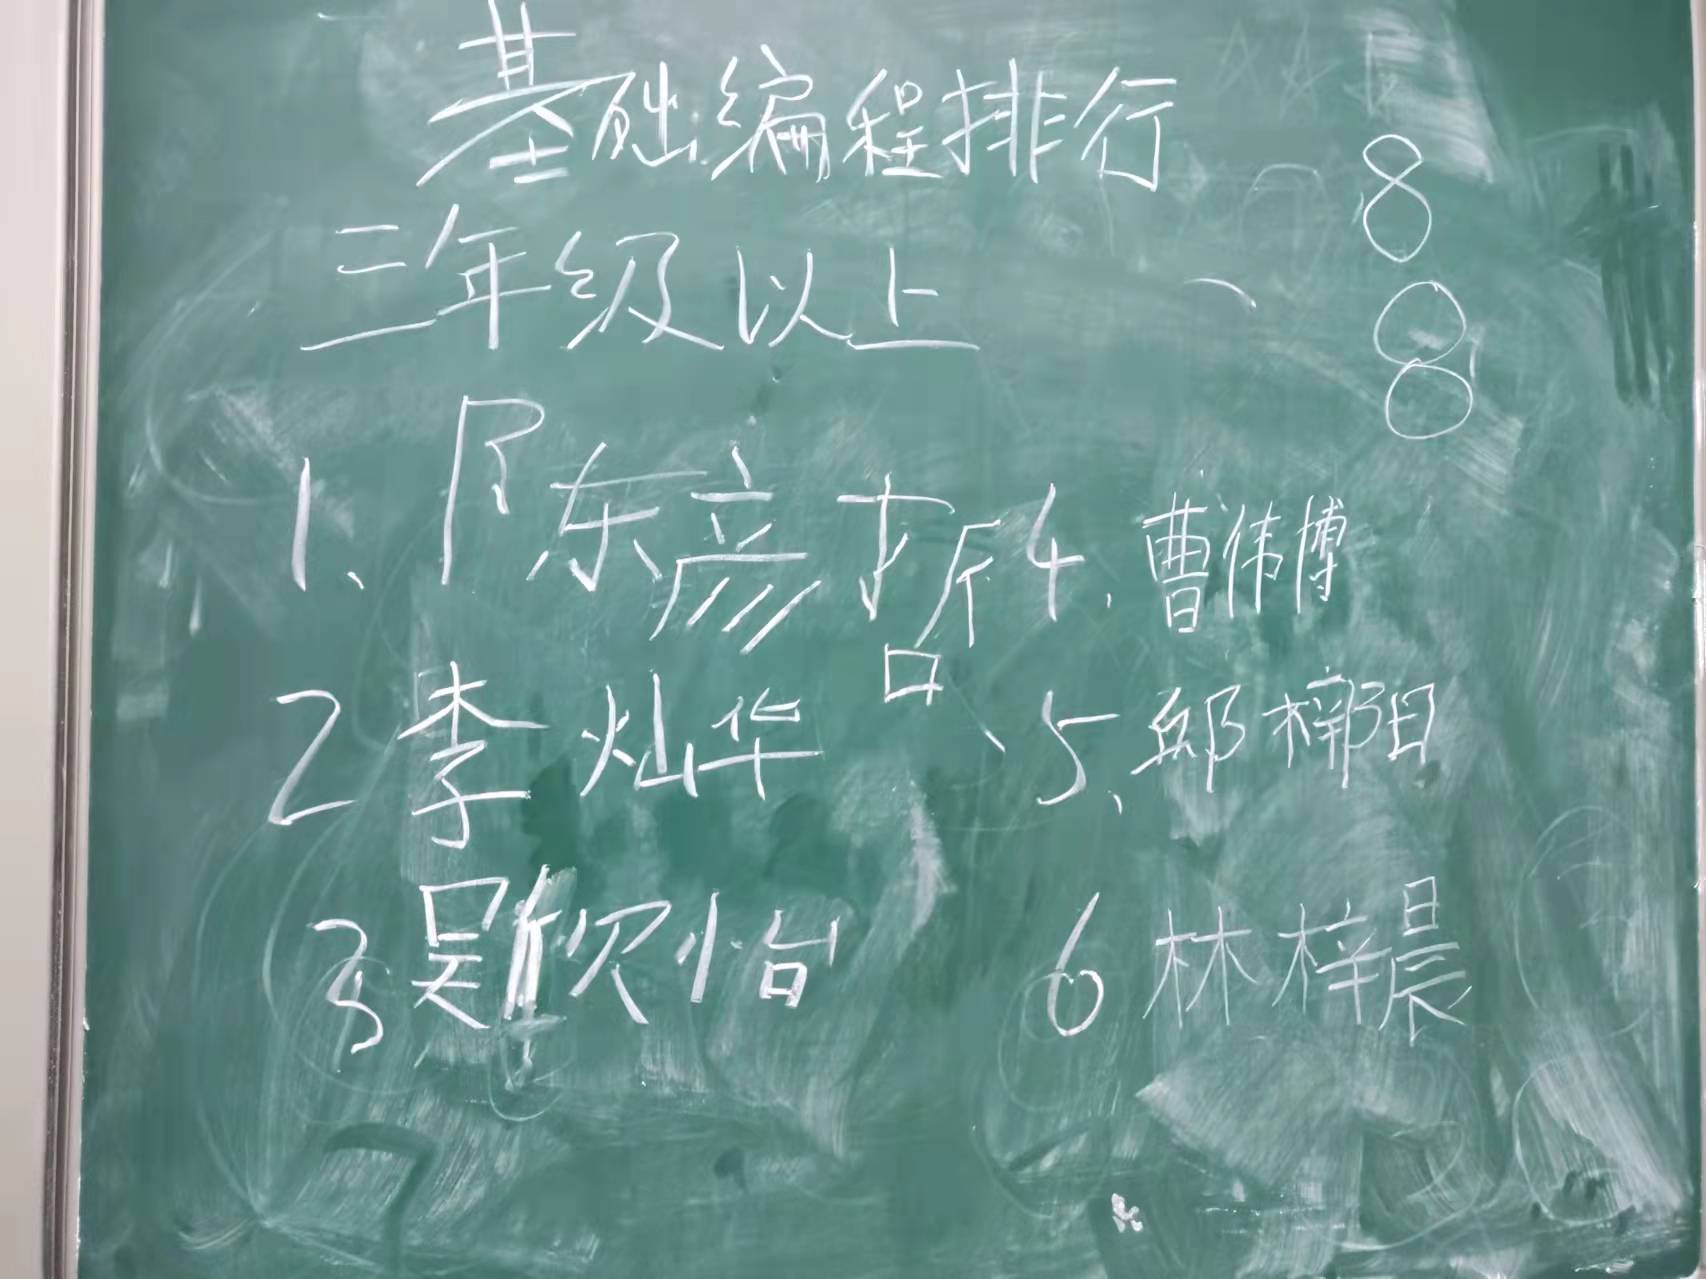 基础编程排行
三年级以上
1、陈彦哲
2 李灿华
3 吴欣怡
4、曹伟博
5、邱梓阳
6 林梓晨
8
8